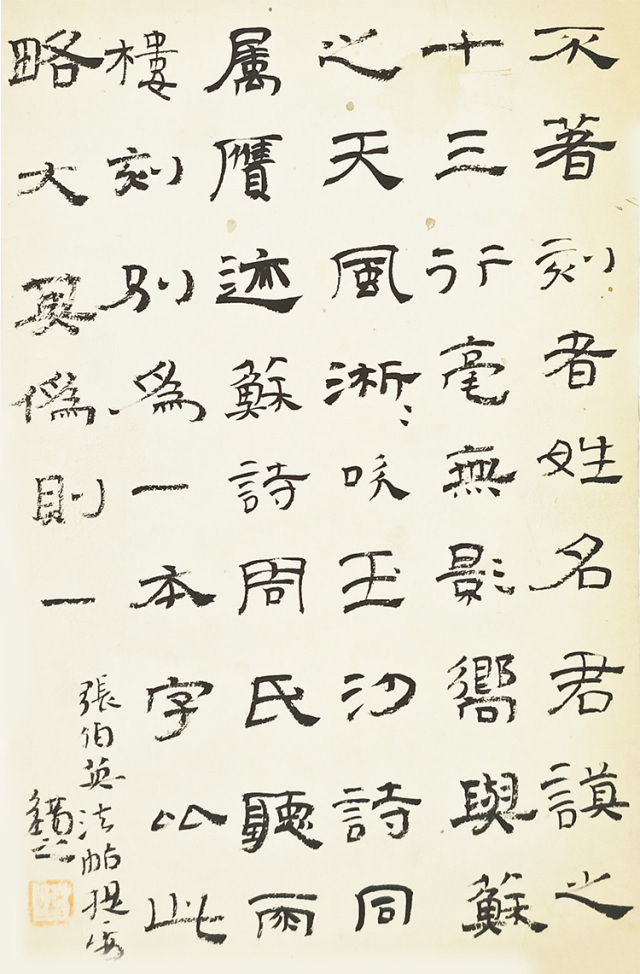 不著刻者姓名君謨之
十三行毫無影嚮與蘇
之天風淅淅吹玉沙詩同
属贋迹蘇詩周氏聽雨
樓刻別為一本字以此
略大其偽則一
張伯英法帖提要